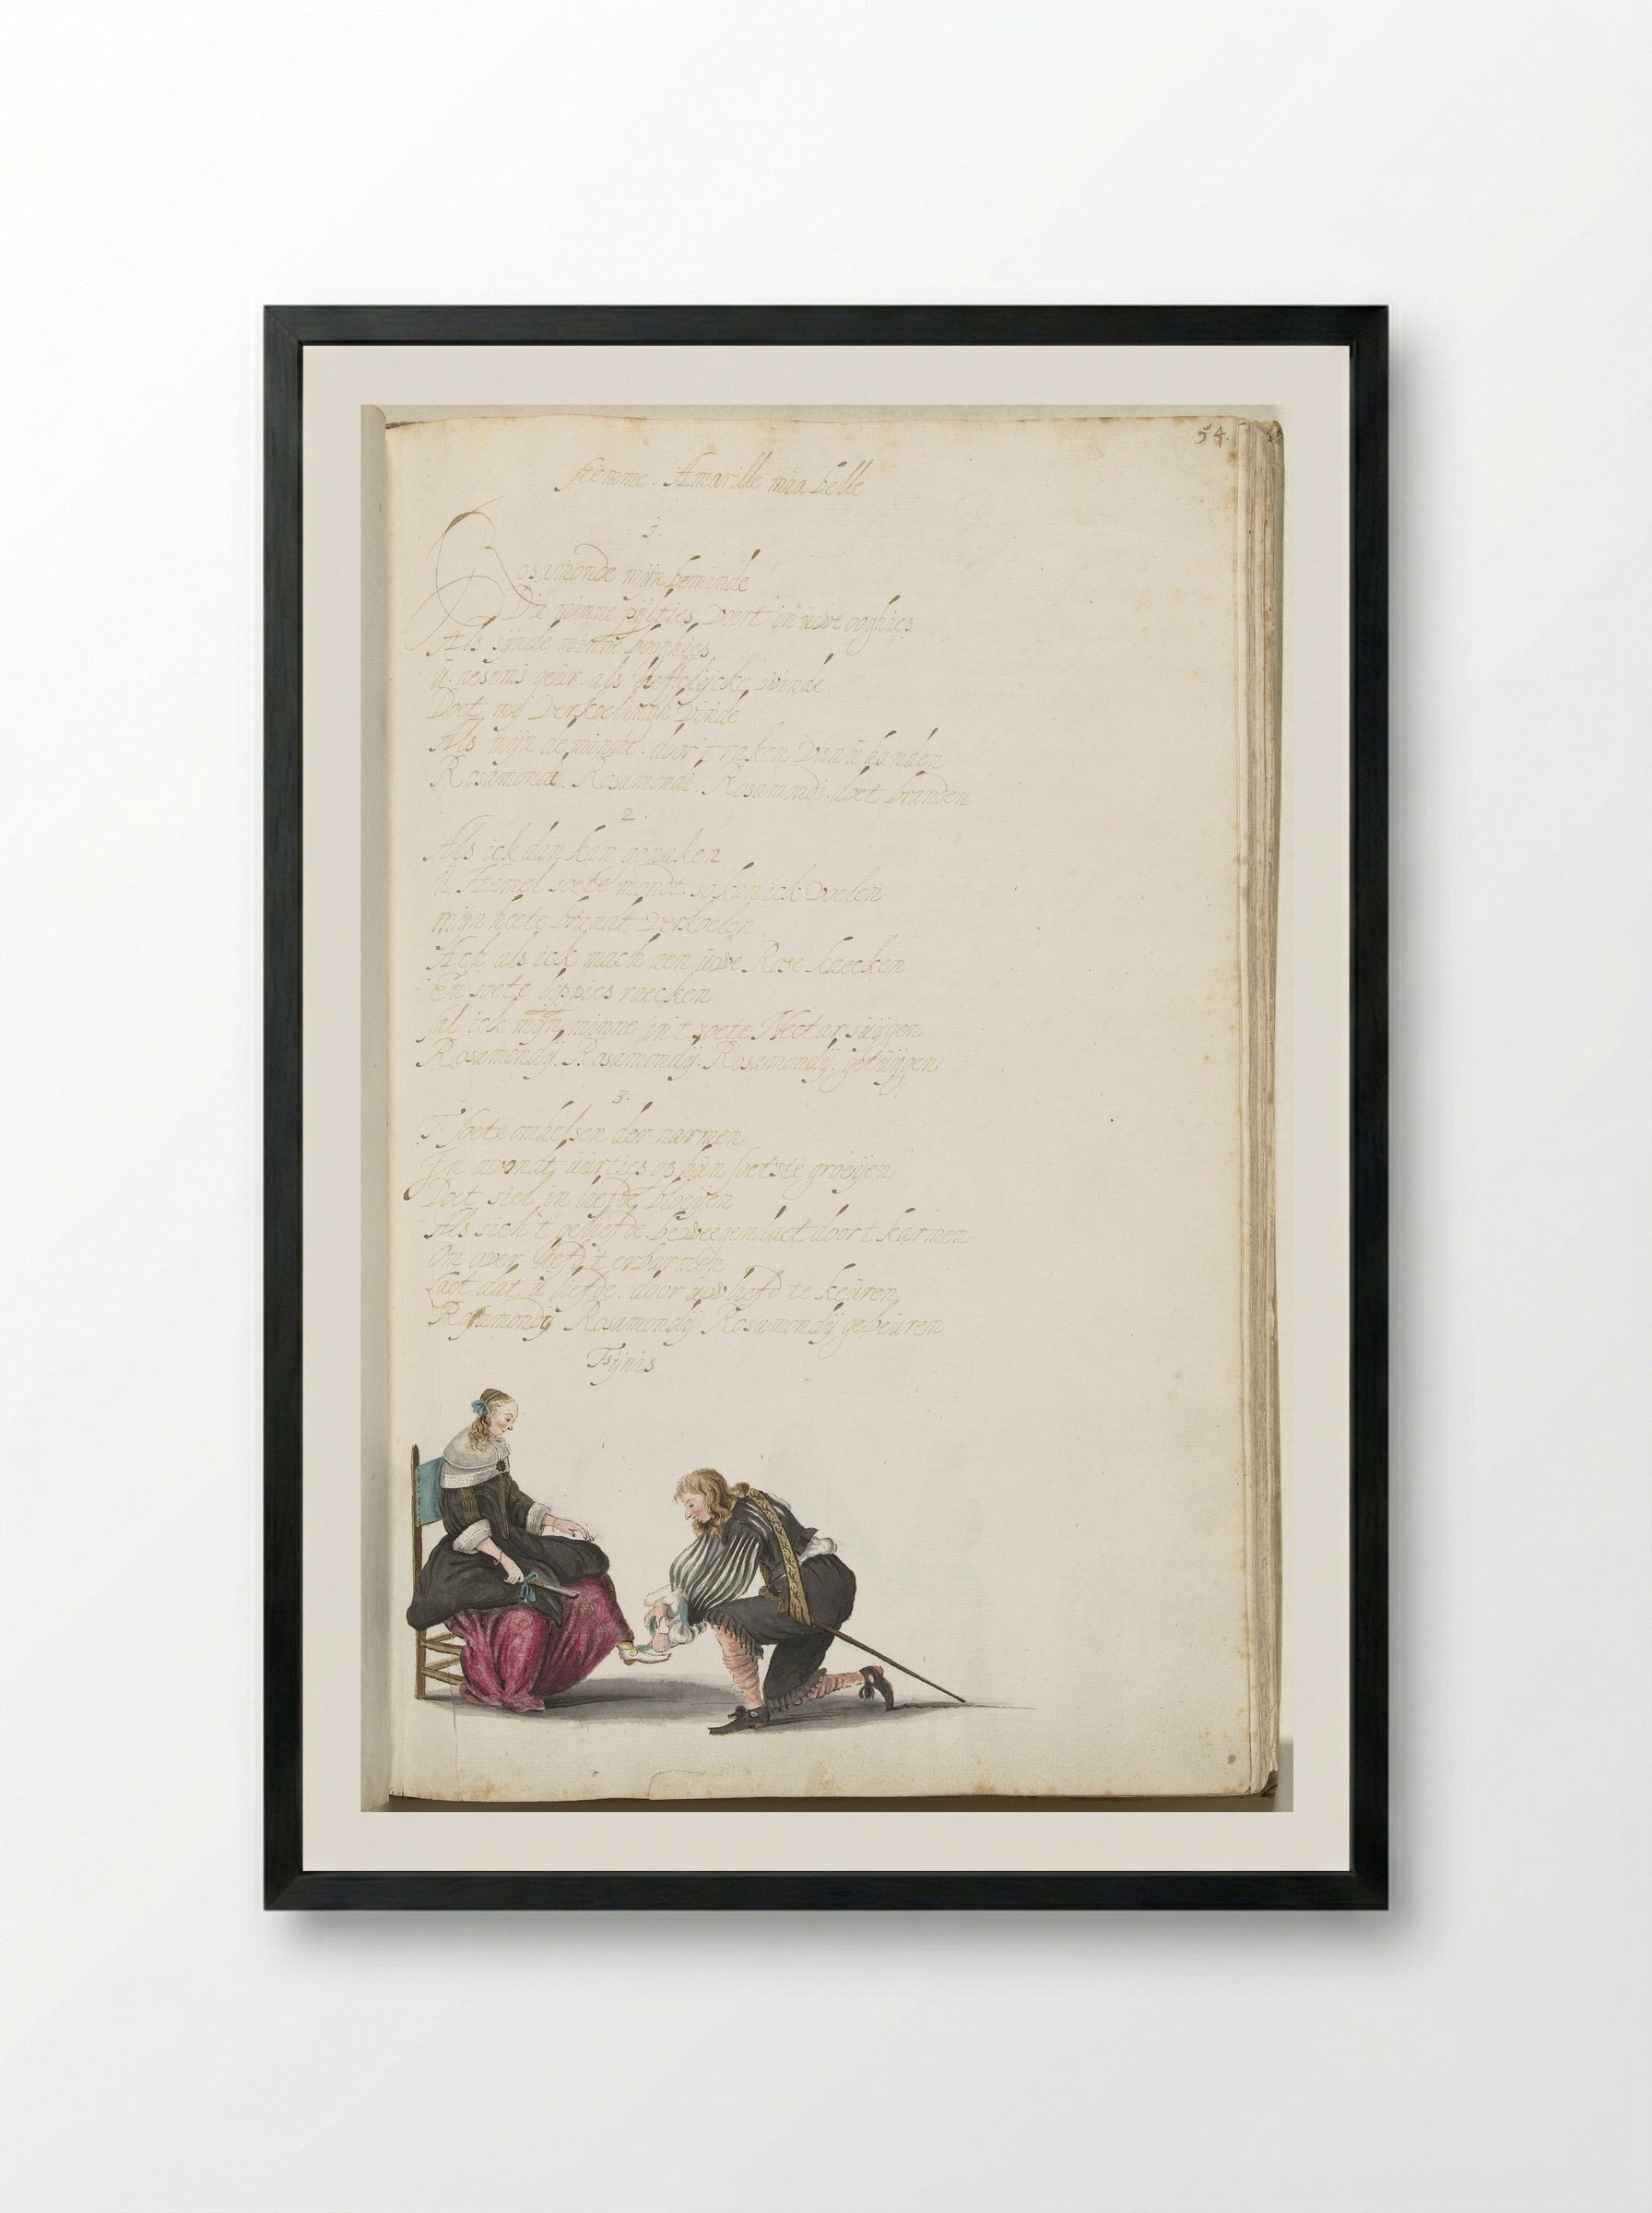 54.
stemme. Amarille mia belle
1.
Rosamonde mijn beminde
Die minne pijlties voert in uwe ooghies
Als sijnde minne booghies
ü. aesems geür. als lieffelijcke winde
Doet mij verkoelingh vinde
Als mijn de minne. door t raken van ü handen
Rosamondi. Rosamondi. Rosamondi. doet branden
2.
Als ick dan kan genaken
ü. Hemel soete mondt. so kan ick voelen
mijn heete brandt verkoelen
Ach als ick mach aen uwe Rose kaecken
En soete lippies raecken
sal ick mijn minne in t soete Nectar süijgen
Rosamondij. Rosamondij. Rosamondij. getüijgen
3.
T. soete omhelsen der narmen
Jn avondt üürties op hün soetste groeijen
Doet siel in liefde bloeijen
Als sich t geliefde. beweegen laet door t karmen
Om over liefd't erbarmen
Laet dat ü liefde. door üw liefd te keüren
Rosamondij Rosamondij Rosamondij gebeüren
Fijnis